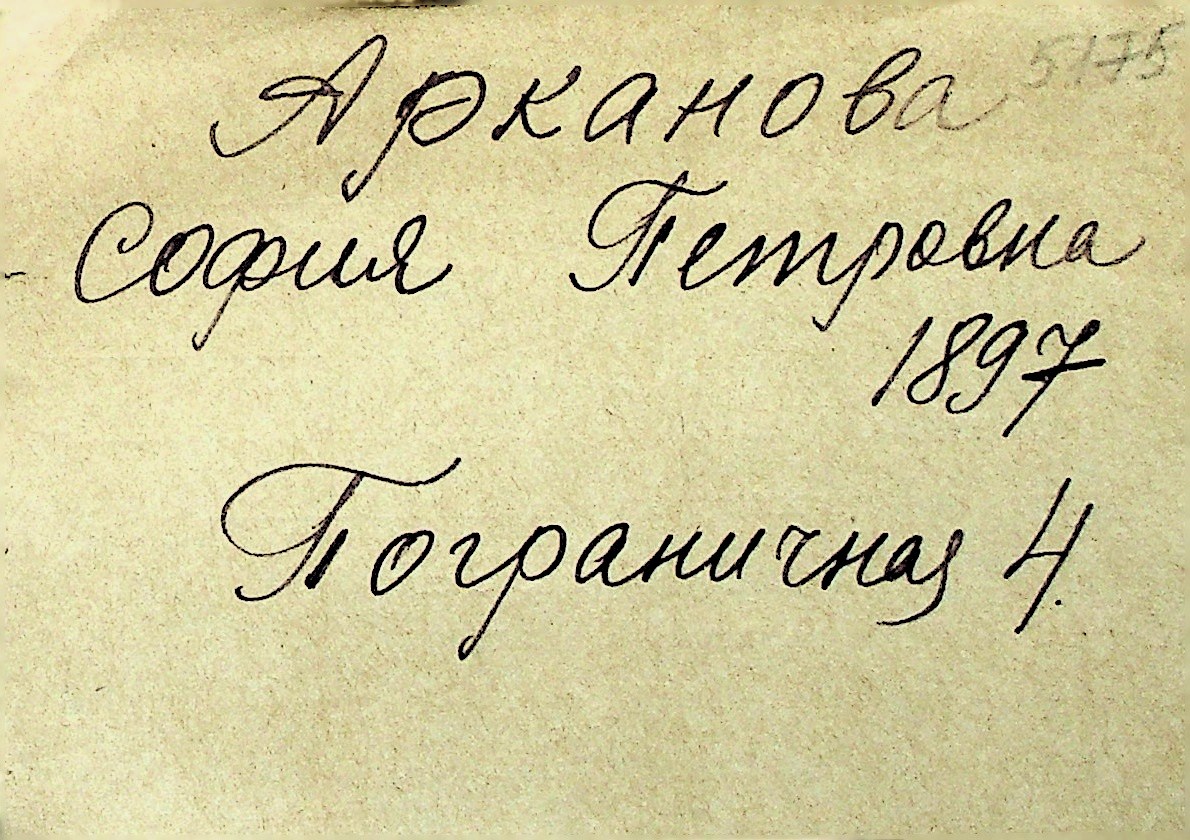 Арканова 5175
София Петровна
1897
Пограничная 4.